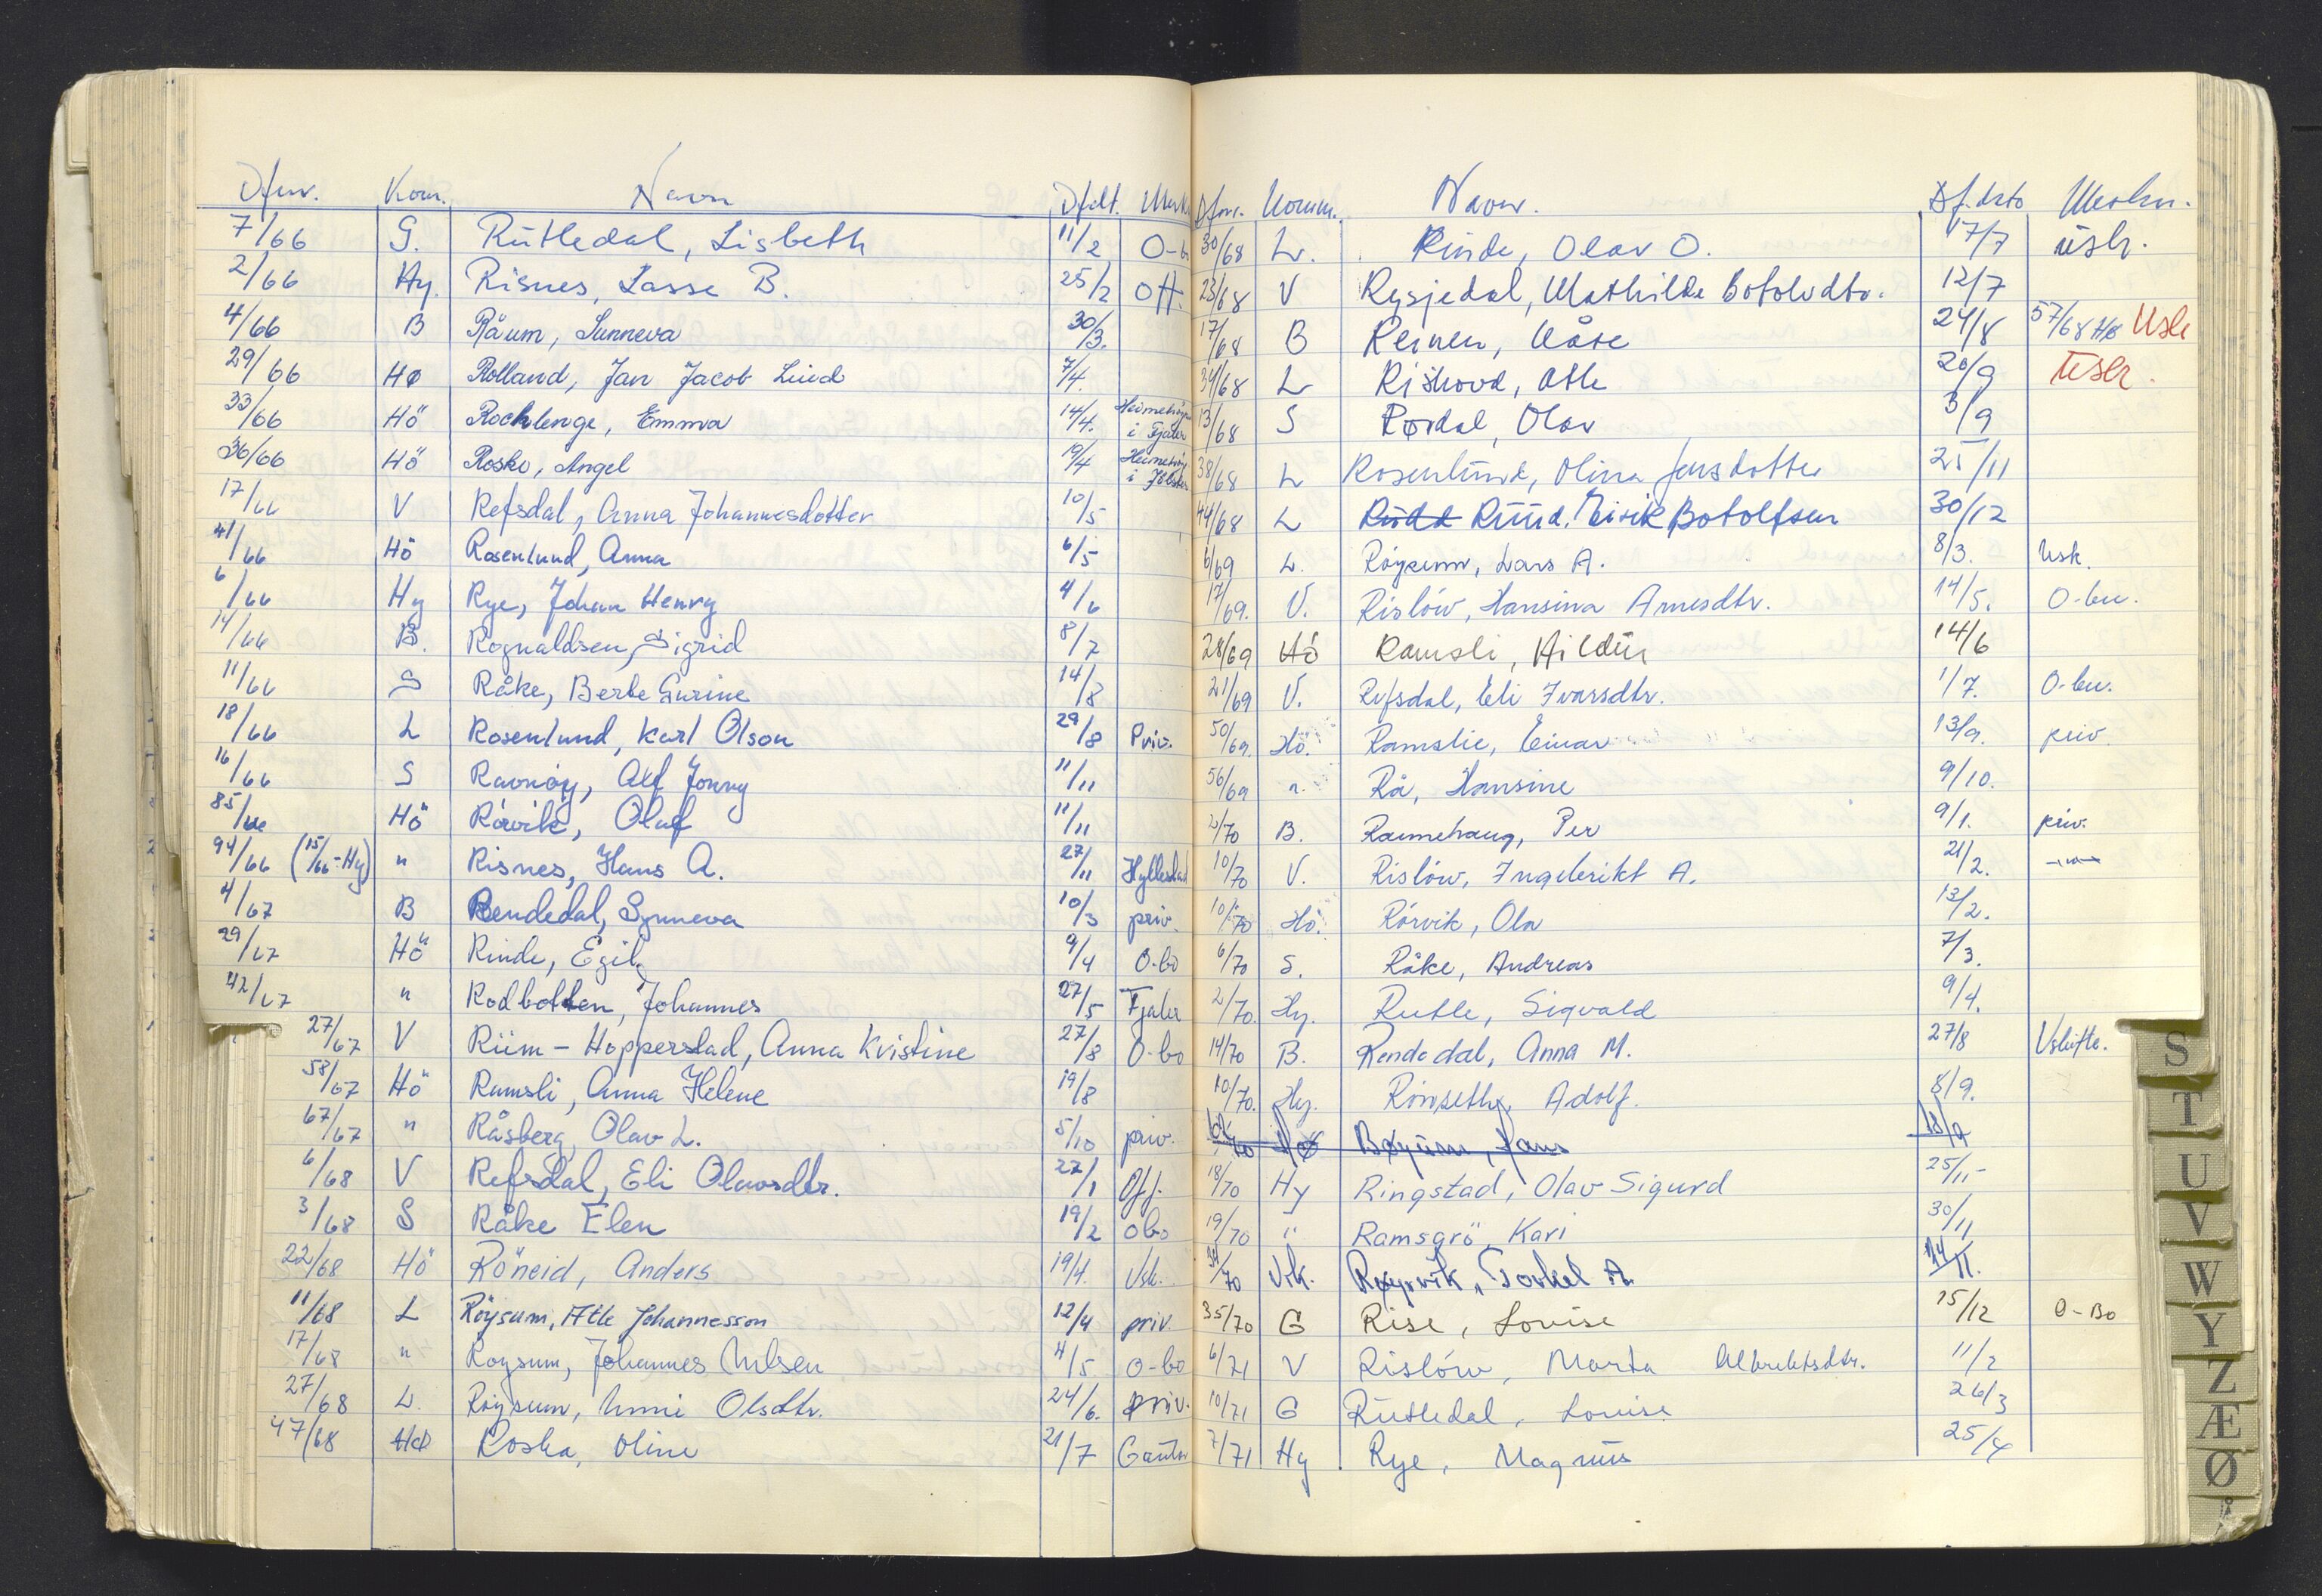 Dfnr. Kom. Navn Dfdt. Merkn
7/66 G. Rutledal, Lisbeth 11/2 O-b
2/66 Hy. Risnes, Lasse B. 25/2 Off.
4/66 B Råum, Sunneva 30/3.
29/66 HØ Rolland, Jan Jacob Lund 7/4.
33/66 Hö Rochlenge, Emma 14/4. Heimehøyr i Fjaler
36/66 Hö Rosko, Angel 19/4 Heimehøyr i Jölster
17/66 V Refsdal, Anna Johannesdotter 10/5
41/66 Hö Rosenlund, Anna 6/5
6/66 Hy Rye, Johan Henry 4/6
14/66 B. Rognaldsen, Sigrid 8/7
11/66 S Råke, Berte Gurine 14/8
18/66 L Rosenlund, Karl Olson 29/8 Priv.
16/66 S Ravnöy, Alf Jonny 11/11
85/66 Hö Rörvik, Oluf 11/11
94/66 (15/66-Hy) " Risnes, Hans A. 27/11 Hyllestad
4/67 B Rendedal, Synneva 10/3 priv.
29/67 Hö Rinde, Egil 9/4 O.bo
42/67 " Rodbotten, Johannes 27/5 Fjaler
27/67 V Riim - Hopperstad, Anna Kristine 27/8 O-bo
58/67 Hö Ramsli, Anna Helene 19/8
67/67 " Råsberg, Olav L. 5/10 priv.
6/68 V Refsdal, Eli Olavsdtr. 27/1 Off.
3/68 S Råke Elen 19/2 obo
22/68 Hö Röneid, Anders 19/4. Usk.
11/68 L Röysum, Atle Johannesson 12/4 priv.
17/68 " Röysum, Johannes Nilsen 4/5. O-bo
27/68 L. Röysum, Unni Olsdtr. 24/6. priv.
47/68 HØ Roska, Oline 21/7 Gaular
Dfnr. Komm. Navn. Df.dato Merkn.
30/68 L. Rinde, Olav O. 17/7 uslr.
23/68 V Rysjedal, Mathilde Botolvdtr. 12/7
17/68 B Reinen, Kåre 24/8 57/68 Hø Usle
34/68 L Rishovd, Atle 20/9 Uslr.
13/68 S Rørdal, Olav 3/9
38/68 L Rosenlund, Olina Jensdotter 25/11
44/68 L Rudd Ruud, Eirik Botolfsen 30/12
6/69 L. Röysum, Lars A. 8/3. Usk.
17/69. V. Rislöw, Hansina Arnesdtr. 14/5. O-bu.
28/69 Hö Ramsli, Hildur 14/6
21/69 V. Refsdal, Eli Ivarsdtr. 1/7. O-bu.
50/69. Hö. Ramslie, Einar 13/9. priv.
56/69 ". Rå, Hansine 9/10.
2/70 B. Raumehaug, Per 9/1. priv.
10/70 V. Rislöw, Ingebrikt A. 21/2. -"-
10/70 Hö. Rörvik, Ola 13/2.
6/70 S. Råke, Andreas 7/3.
2/70. Hy. Rutle, Sigvald 9/4.
14/70 B. Rendedal, Anna M. 27/8 Uskifte.
10/70. Hy. Rönseth, Adolf. 8/9.
/70 HØ Bøyum, Hans 18/9
18/70 Hy Ringstad, Olav Sigurd 25/11
19/70 " Ramsgrö, Kari 30/11
/70 Vik. Røysvik, Torkel A. 24/11.
35/70 G Rise, Lovise 15/12 O-Bo
6/71 V Rislöw, Marta Albrektsdtr. 11/2
10/71 G Rutledal, Louise 26/3
7/71 Hy Rye, Magnus 25/4
S
T
U
V
W
Y
Z
Æ
Ø
Å